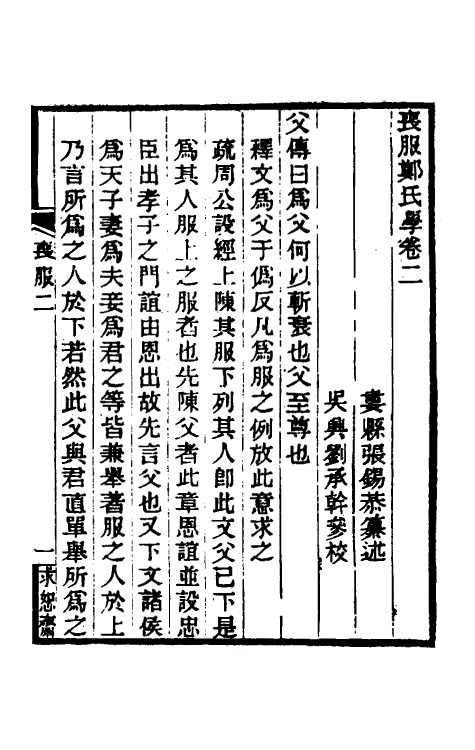 喪服鄭氏學卷二
婁縣張錫恭纂述
吳興劉承幹參校
父傳曰爲父何以斬衰也父至尊也
釋文爲父于僞反凡爲服之例放此意求之
疏周公設經上陳其服下列其人卽此文父已下是
爲其人服上之服者也先陳父者此章恩誼並設忠
臣出孝子之門誼由恩出故先言父也又下文諸侯
爲天子妻爲夫妾爲君之等皆兼舉著服之人於上
乃言所爲之人於下若然此父與君直單舉所爲之
喪服二
一
求恕齋